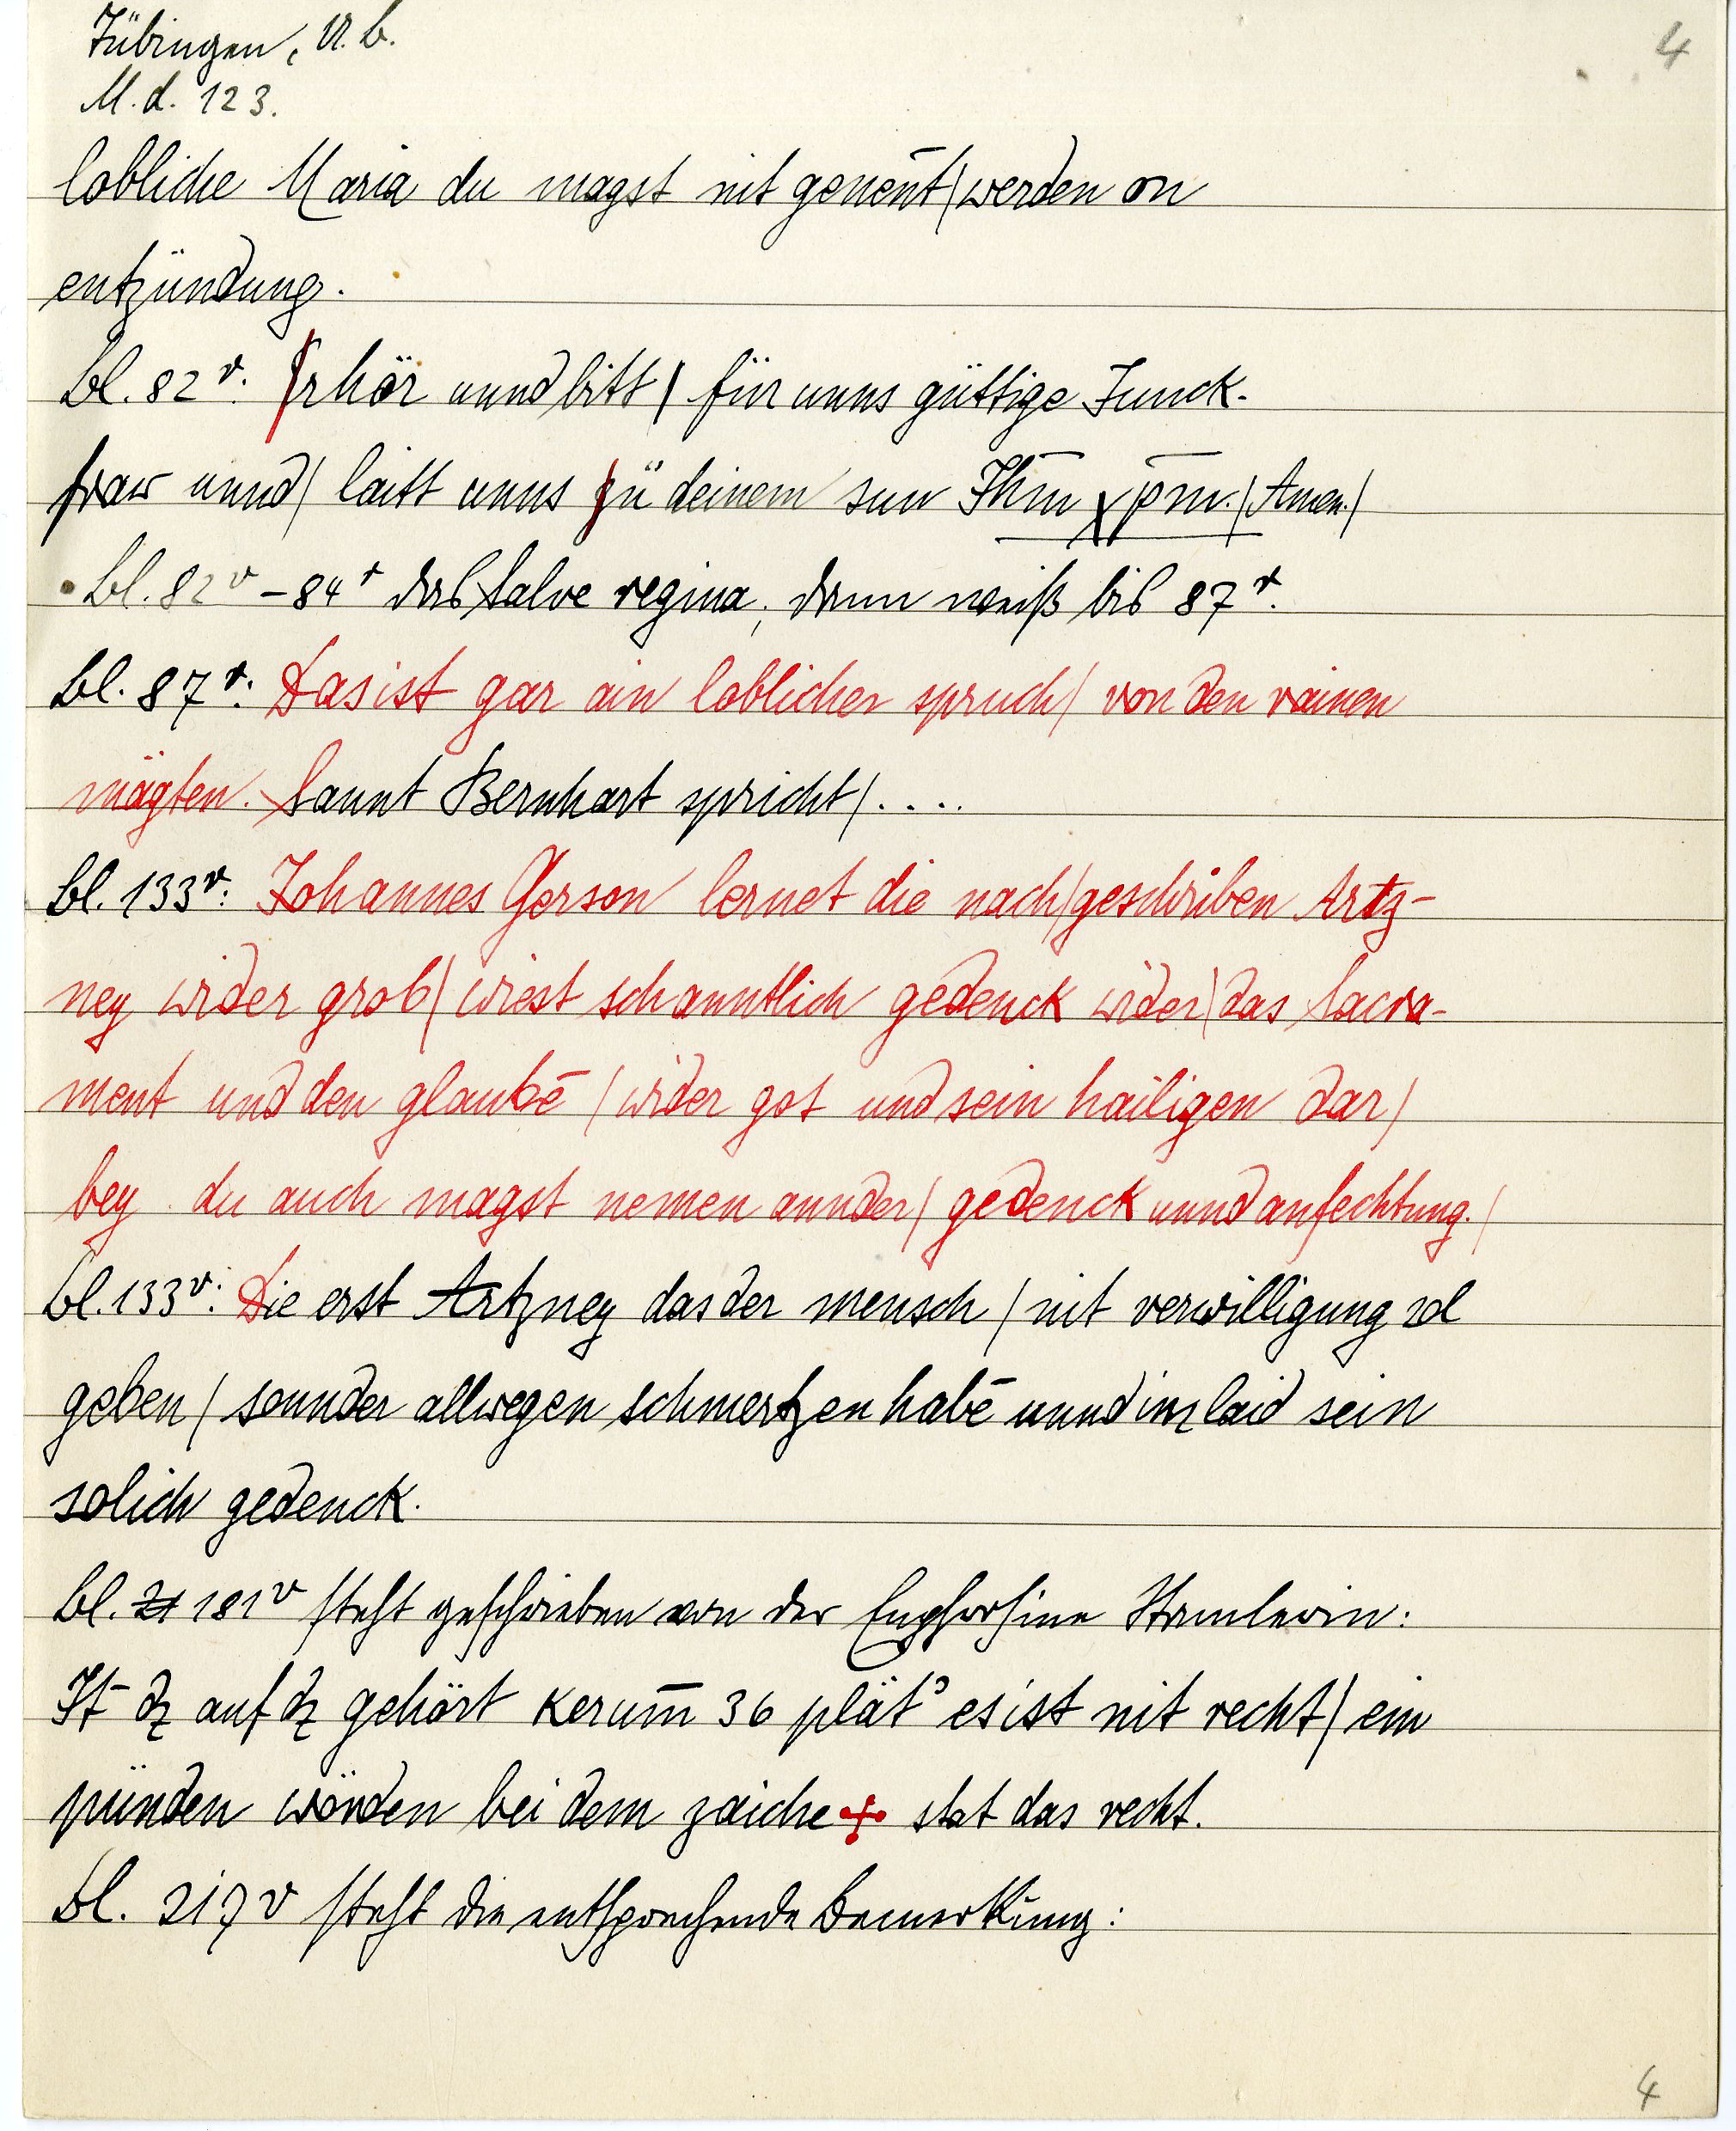 Tübingen, U. B.
4
M. d. 123.
lobliche Maria du magst nit genēnt | werden on
entzündung.
Bl. 82v: Erhör unnd bitt | für unns güttige Junck-
fraw unnd | laitt unns zü deinem sun Jhm̄ xp̄m. | Amen. |
Bl. 82v – 84r das Salve regina, dann weiß bis 87r.
Bl. 87r: Das ist gar ain loblicher spruch | von den rainen
mägten. Sannt Bernhart spricht | ....
Bl. 133r: Johannes Gerson lernet die nach | geschriben Artz-
ney wider grob | wiest schanntlich gedenck wider | das Sacra-
ment und den glaubē | wider got und sein hailigen dar |
bey du auch magst nemen annder | gedenck unnd anfechtung. |
Bl. 133v: Die erst Artzney das der mensch | nit verwilligung sol
geben | sonnder allwegen schmertzen habē unnd im laid sein
solich gedenck.
Bl. 181v steht geschrieben von der Euphrosine
It– dz auf dz gehört kerum̄ 36 plät' es ist nit recht | ein
pünden wörden bei dem zaiche ÷ stat das recht.
Bl. 217v steht die entsprechende Bemerkung:
4